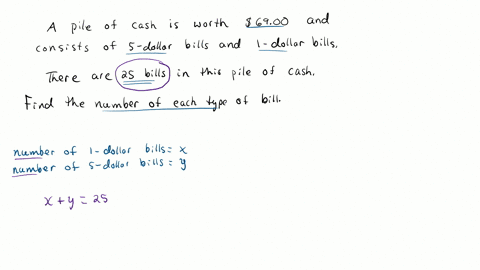 A pile of cash is worth $69.00 and
consists of 5-dollar bills and 1-dollar bills.
There are 25 bills in this pile of cash.
Find the number of each type of bill.
number of 1-dollar bills = x
number of 5-dollar bills = y
x + y = 25